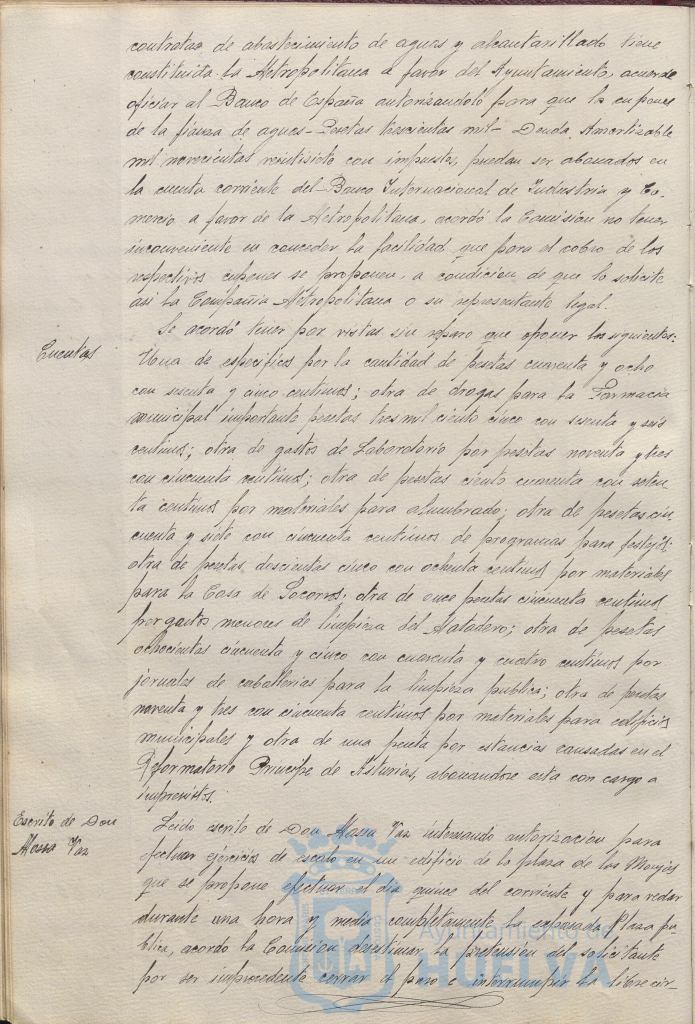 contratas de abastecimiento de aguas y alcantarillado tiene
constituida la Metropolitana a favor del Ayuntamiento, acuerde
oficiar al Banco de España autorizandolo para que los cupones
de la fianza de aguas - Pesetas trescientas mil - Deuda Amortizable
mil novecientos veintisiete con impuesto, puedan ser abonados en
la cuenta corriente del Banco Internacional de Industria y Co-
mercio a favor de la Metropolitana, acordó la Comisión no tener
inconveniente en conceder la facilidad que para el cobro de los
respectivos cupones se proponen, a condición de que lo solicite
asi la Compañia Metropolitana o su representante legal.
Cuentas
Se acordó tener por vistas sin reparo que oponer las siguientes:
Una de especificos por la cantidad de pesetas cuarenta y ocho
con sesenta y cinco centimos; otra de drogas para la Farmacia
municipal importante pesetas tres mil ciento cinco con sesenta y seis
centimos; otra de gastos de Laboratorio por pesetas noventa y tres
con cincuenta centimos; otra de pesetas ciento cuarenta con seten
ta centimos por materiales para alumbrado; otra de pesetas cin
cuenta y siete con cincuenta centimos de programas para festejos;
otra de pesetas doscientas cinco con ochenta centimos por materiales
para la Casa de Socorros; otra de once pesetas cincuenta centimos
por gastos menores de limpieza del Matadero; otra de pesetas
ochocientas cincuenta y cinco con cuarenta y cuatro centimos por
jornales de caballerias para la limpieza publica; otra de pesetas
noventa y tres con cincuenta centimos por materiales para edificios
municipales y otra de una peseta por estancias causadas en el
Reformatorio Principe de Asturias, abonandose esta con cargo a
imprevistos.
Escrito de Don
Vaz
Leido escrito de Don Vaz interesando autorización para
efectuar ejercicios de escalo en un edificio de la plaza de las Monjas
que se propone efectuar el dia quince del corriente y para vedar
durante una hora y media completamente la expresada Plaza pu-
blica, acordo la Comision desestimar la pretension del solicitante
por ser improcedente cerrar el paso e interrumpir la libre cir-
Ayuntamiento de
HUELVA